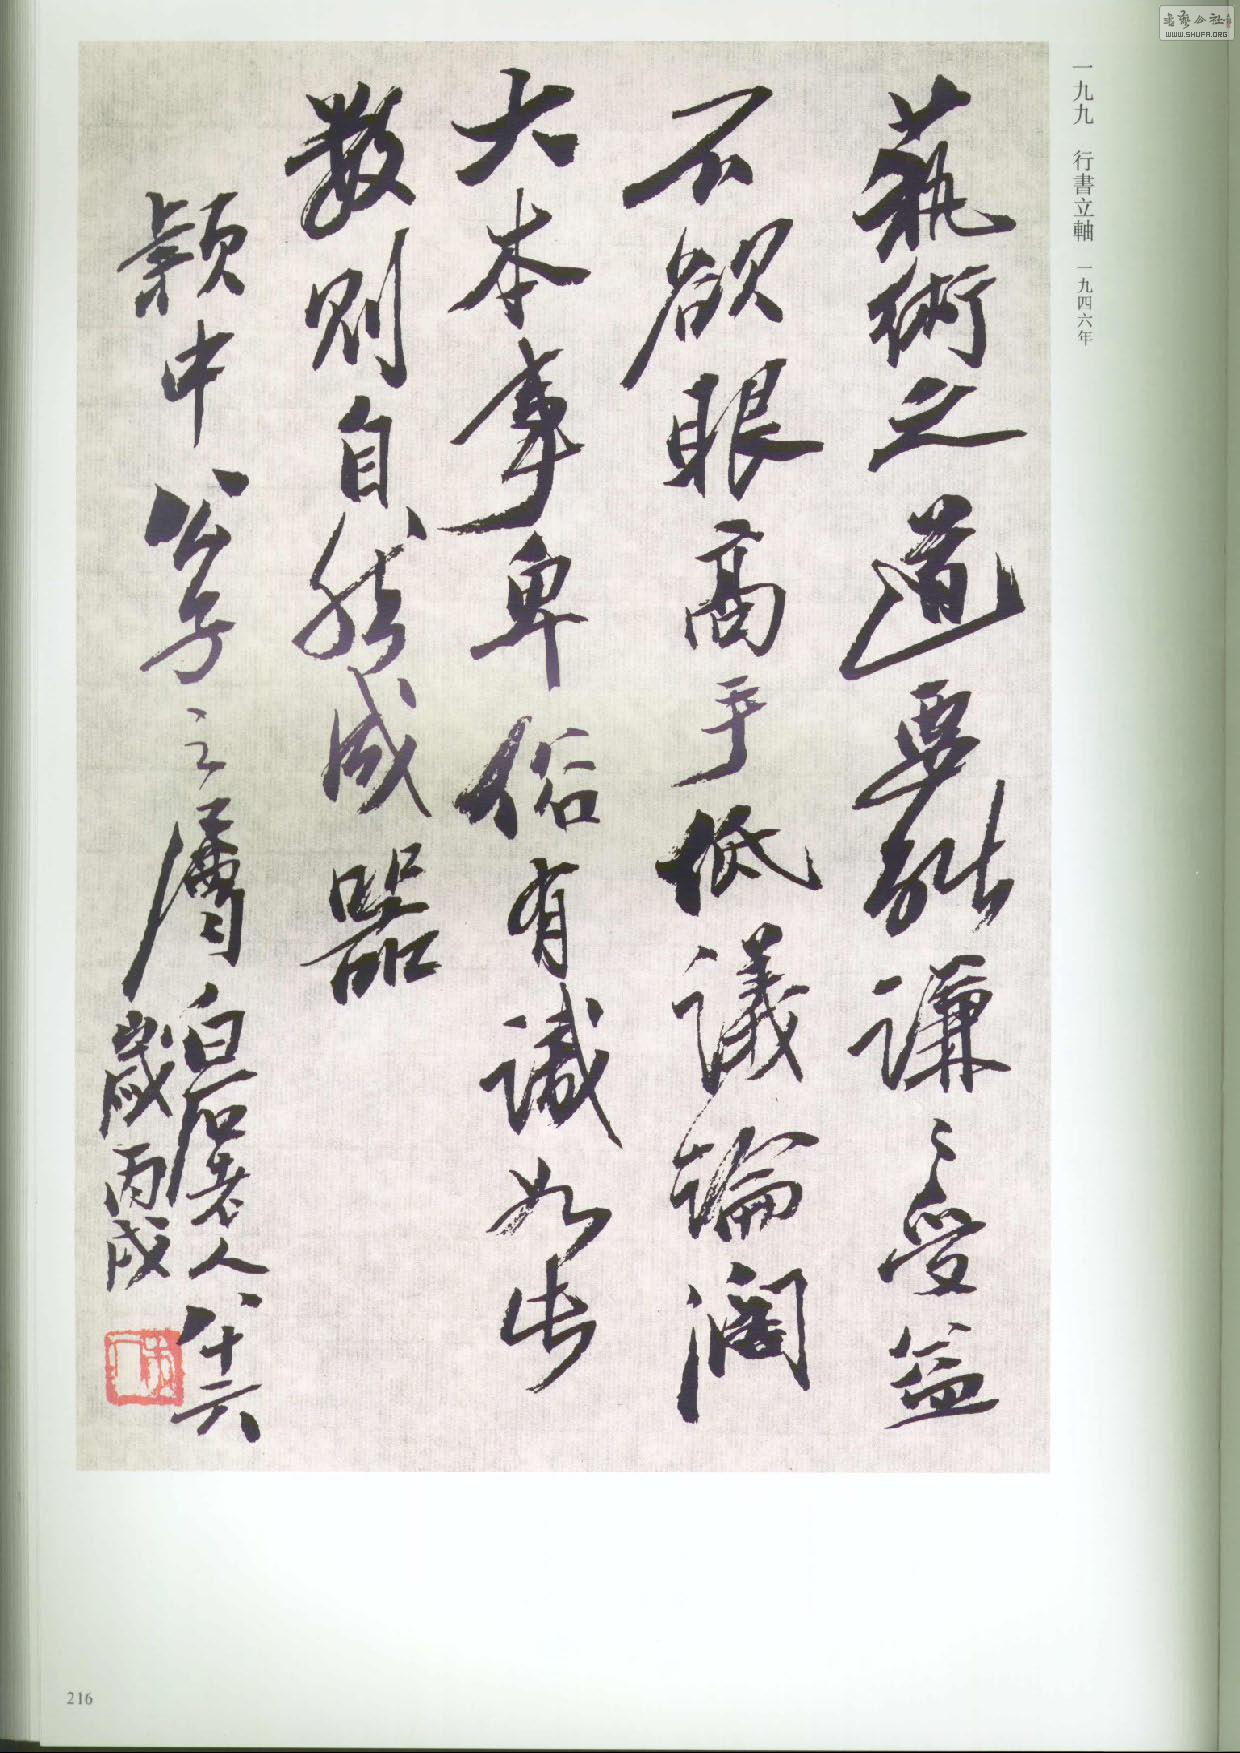 一九九 行書立軸 一九四六年
藝術之道要能謙謙受益
不欲眼高手低議論闊
大本事卑俗有識如此
數則自然成器
穎中公子之屬
白石老人八十六
歲丙戌
216
書藝公社
WWW.SHUFA.ORG